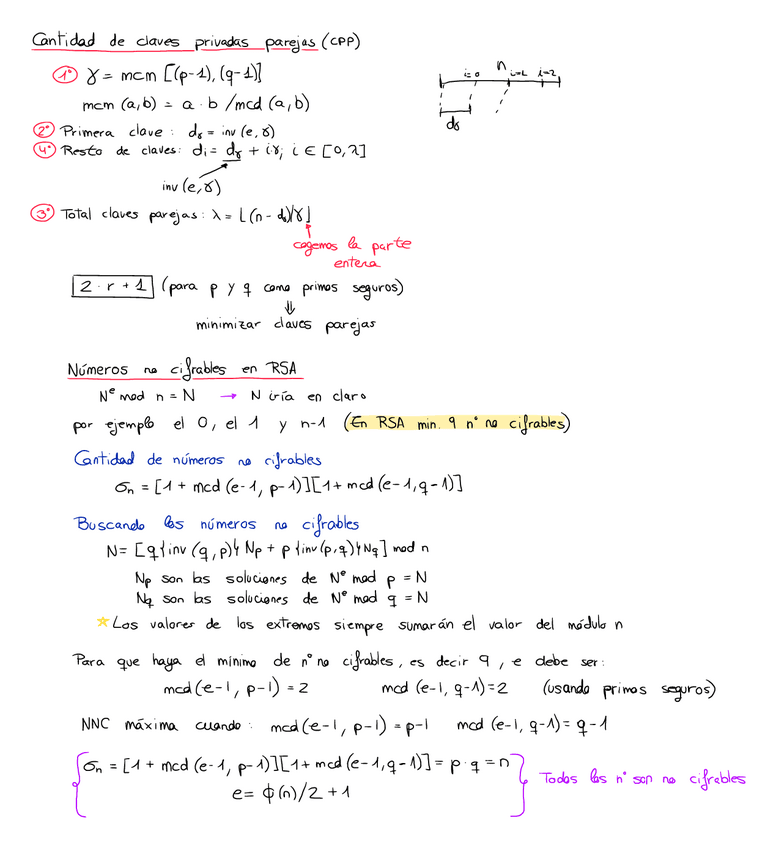 Cantidad de claves privadas parejas (CPP)
1º γ = mcm [(p-1), (q-1)]
mcm (a,b) = a · b / mcd (a,b)
i=0 n i=1 i=2
dγ
2º Primera clave: dγ = inv (e, γ)
4º Resto de claves: di = dγ + iγ; i ∈ [0, λ]
inv (e, γ)
3º Total claves parejas: λ = ⌊(n - dγ)/γ⌋
cogemos la parte
entera
2 · r + 1 (para p y q como primos seguros)
⇓
minimizar claves parejas
Números no cifrables en RSA
N^e mod n = N → N iría en claro
por ejemplo el 0, el 1 y n-1 (En RSA min. 9 nº no cifrables)
Cantidad de números no cifrables
σn = [1 + mcd (e-1, p-1)][1 + mcd (e-1, q-1)]
Buscando los números no cifrables
N = [q{inv (q, p)} Np + p {inv (p, q)} Nq] mod n
Np son las soluciones de N^e mod p = N
Nq son las soluciones de N^e mod q = N
☆ Los valores de los extremos siempre sumarán el valor del módulo n
Para que haya el mínimo de nº no cifrables, es decir 9, e debe ser:
mcd (e-1, p-1) = 2 mcd (e-1, q-1) = 2 (usando primos seguros)
NNC máxima cuando: mcd (e-1, p-1) = p-1 mcd (e-1, q-1) = q-1
σn = [1 + mcd (e-1, p-1)][1 + mcd (e-1, q-1)] = p · q = n
e = φ(n)/2 + 1
Todos los nº son no cifrables